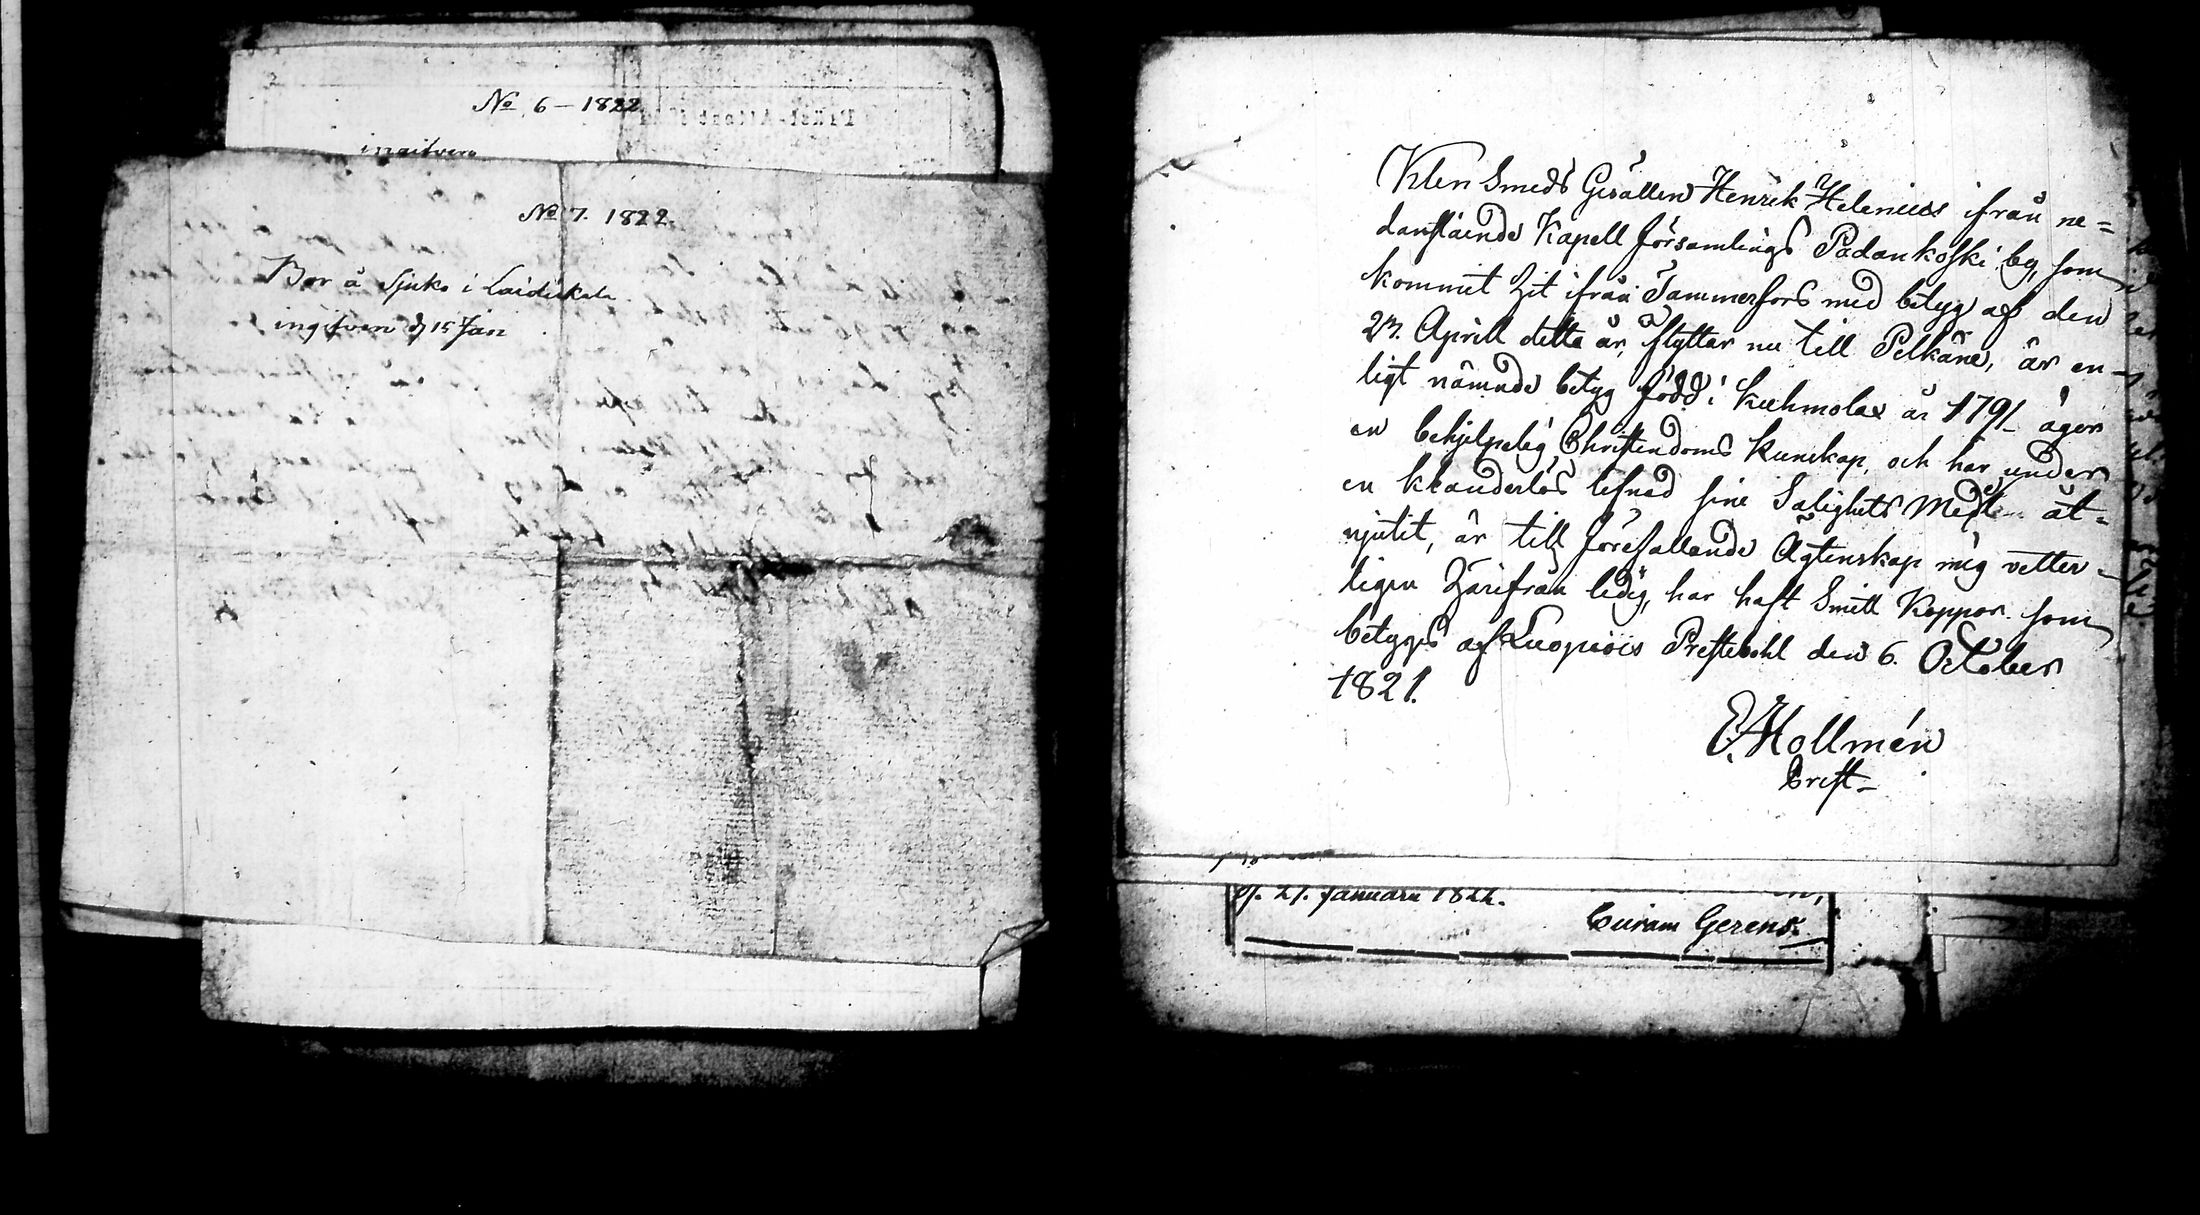 No 6 – 1822
ingifven
No 7. 1822.
Bor å Sjuko i Laidikala
ingifven d 15 Jan
Klen Smeds Gesällen Henrik Helenius ifrån ne=
danstående Kapell församlings Padankoski by, som
kommit hit ifrån Tammerfors med betyg af den
27. Aprill detta år, flyttar nu till Pelkäne, är en-
ligt nämnde betyg född i Kuhmolax år 1791 äger
en behjelpelig Christendoms kunskap, och har under
en klanderlös lefnad sine Salighets Medel åt-
njutit, är till förefallande Ägtenskap mig vetter-
ligen härifrån ledig, har haft Smitt Koppor som
betygas af Luopiois Prestebohl den 6. October
1821.
E. Hollmén
Prest
d. 21. Januarii 1822.
Curam Gerens.